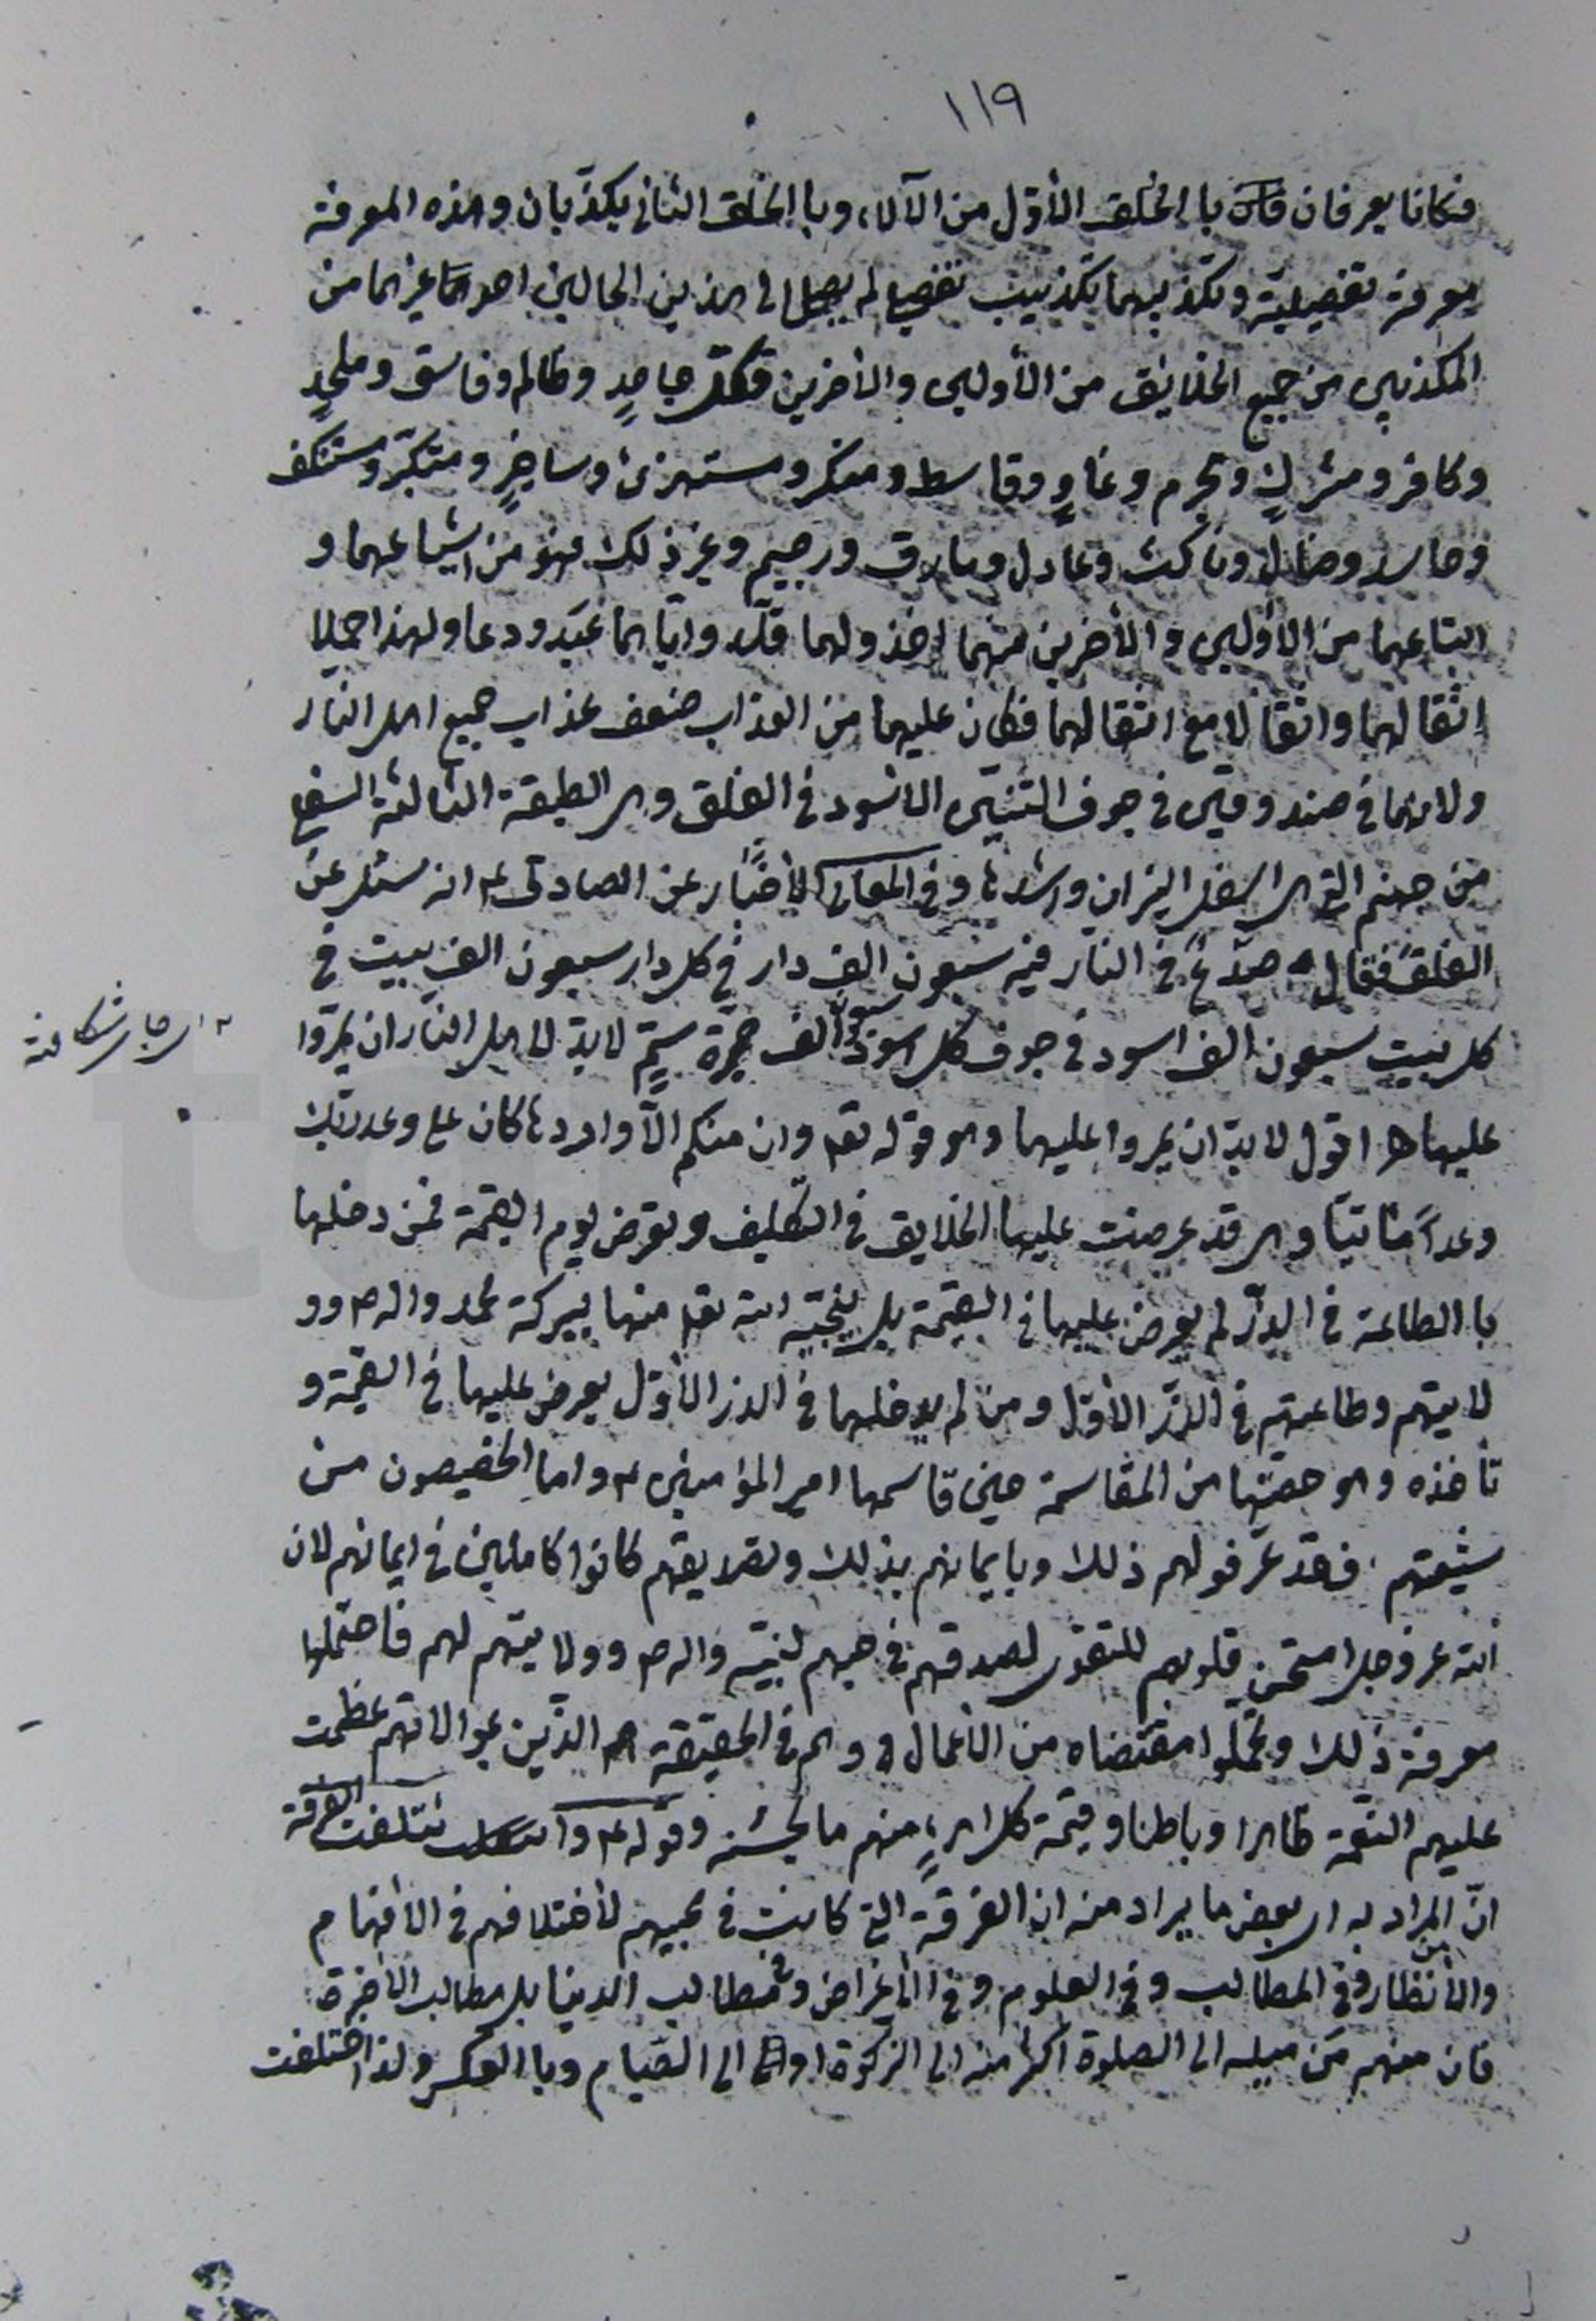 ١١٩
فكانا يعرفان بالخلق الأوّل من الآلاء، وبالخلق الثاني يكذّبان وهذه المعرفة
معرفة تفصيلية وتكذيبهما تكذيب تفصيلي لم يصل إلى هذين الحالين احد غيرهما من
المكذبين من جميع الخلايق من الأولين والأخرين فكلّ جاحدٍ وظالم وفاسق وملحدٍ
وكافر ومشركٍ ومجرم وغاوٍ وقاسط ومنكر ومستهزئ وساخرٍ ومتكبّر ومستنكف
وحاسد وضالّ وناكث وعادل ومارق ورجيم وغير ذلك فهو من اشياعهما و
اتباعهما من الأولين والأخرين منهما اخذ ولهما قلّد وايّاهما عَبَد ودعا ولهذا حملا
اثقالهما واثقالا مع اثقالهما فكان عليهما من العذاب ضعف عذاب جميع اهل النار
ولانهما في صندوقين في جوف التنّين الاسود في الفلق وهي الطبقة الثالثة السفلى
من جهنم التي هي اسفل النيران واشدها وفي المعاني الأخبار عن الصادق ع انه سئل عن
الفلق فقال صدْعٌ في النار فيه سبعون الف دار في كل دار سبعون الف بيت في
كل بيت سبعون الف اسود في جوف كل اسود سبعون الف جرّة سمٍّ لابدّ لاهل النار ان يمرّوا
عليها ه اقول لابدّ ان يمروا عليها وهو قوله تع وان منكم الّا واردها كان على وعد ربّك
وعداً مأتيّا وهي قد عرضت عليها الخلايق في التكليف وتعرض يوم القيمة فمن دخلها
با الطاعة في الذرّ لم يعرض عليها في القيمة بل ينجّيه الله تع منها ببركة محمد واله ص وو
لايتهم وطاعتهم في الذرّ الاوّل ومن لم يدخلها في الذر الأوّل يعرض عليها في القيمة و
تأخذه وهو حصّتها من المقاسمة حين قاسمها امير المؤمنين ع واما الخصيصون من
شيعتهم فقد عرّفوا لهم ذلك وبايمانهم بذلك وتصديقهم كانوا كاملين في ايمانهم لان
الله عز وجل امتحن قلوبهم للتقوى لصدقهم في حبهم لنبيّه واله ص وولايتهم لهم فاحتملوا
معرفة ذلك وتحمّلوا مقتضاه من الاعمال وهم في الحقيقة هم الذين بموالاتهم عظمت
عليهم النعمة ظاهرا وباطنا وقيمة كل امرءٍ منهم ما يحسنه وقوله ع وائتلفت الفرقة
انّ المراد به اي بعض ما يراد منه ان الفرقة التي كانت في محبيهم لأختلافهم في الأفهام
والأنظار وفي المطالب وفي العلوم وفي الأغراض وفي مطالب الدنيا بل مطالب الاخرة
فان منهم مَن ميله الى الصلوة اكثر منه الى الزكوة او الى الصّيام وبا العكس ولذا اختلفت